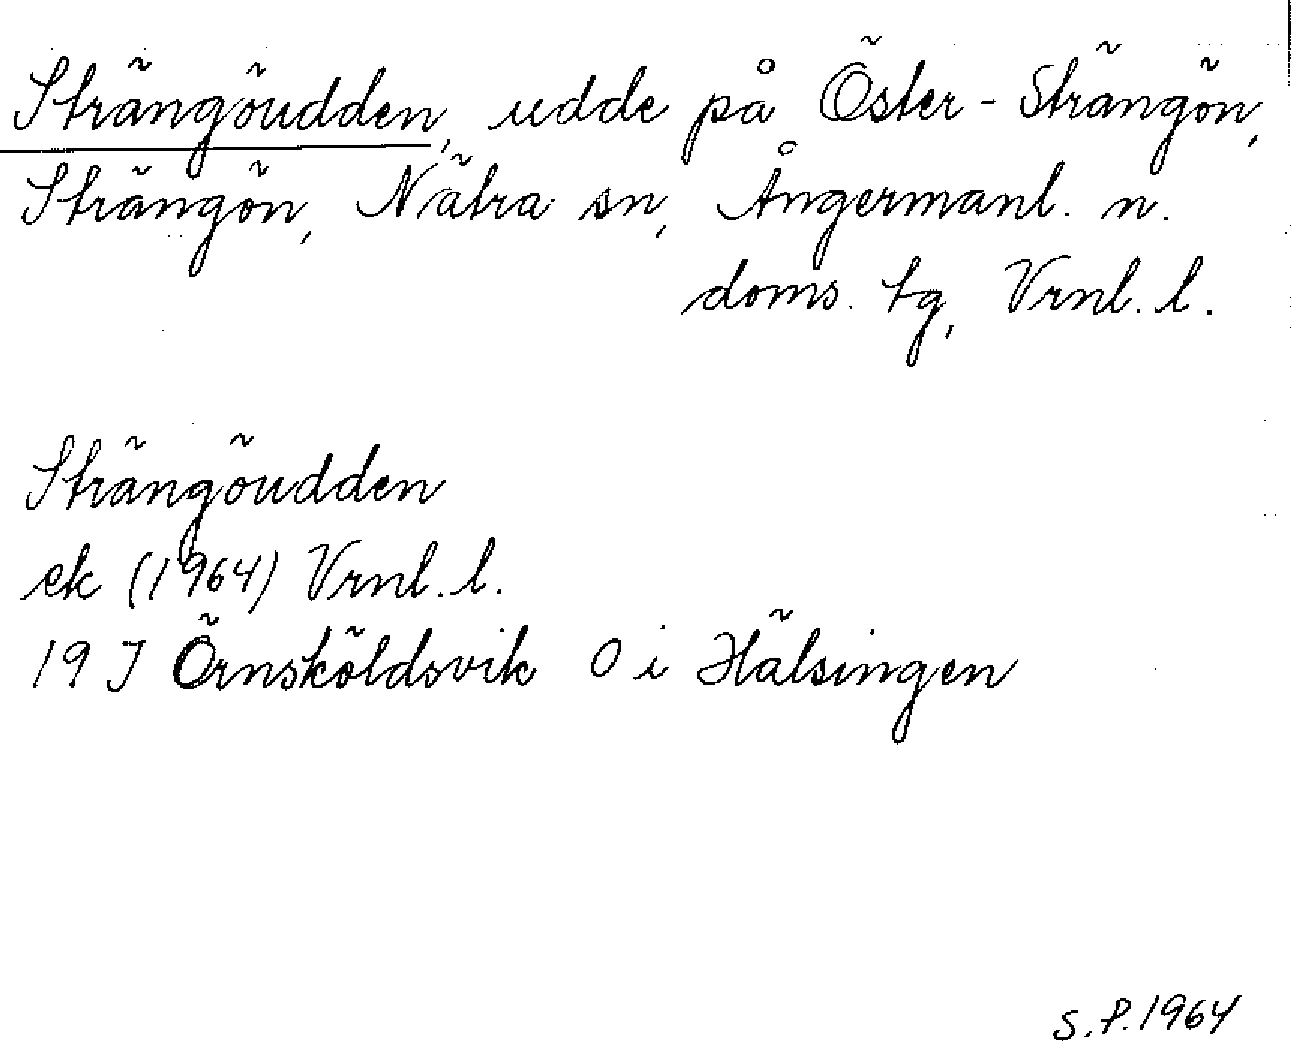 Strängöudden, udde på Öster-Strängön,
Strängön, Nätra sn, Ångermanl. n.
doms. tg, Vrnl. l.
Strängöudden
ek (1964) Vrnl. l.
19 J Örnsköldsvik O i Hälsingen
S.P. 1964